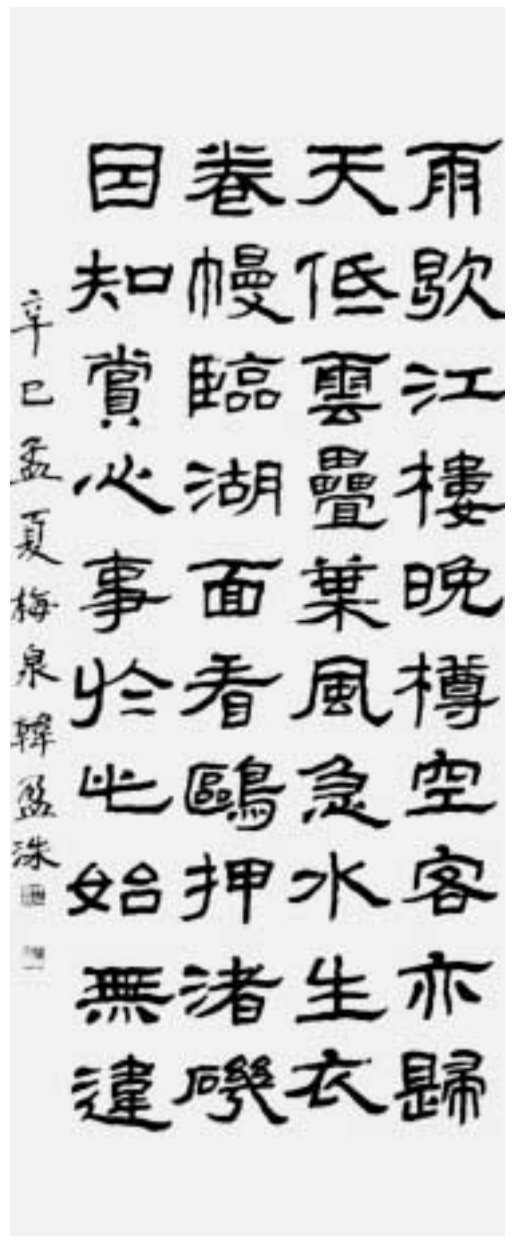 雨歇江樓晚樽空客亦歸
天低雲疊葉風急水生衣
卷幔臨湖面看鷗押渚磯
因知賞心事於此始無違
辛巳孟夏梅泉韓盈洙